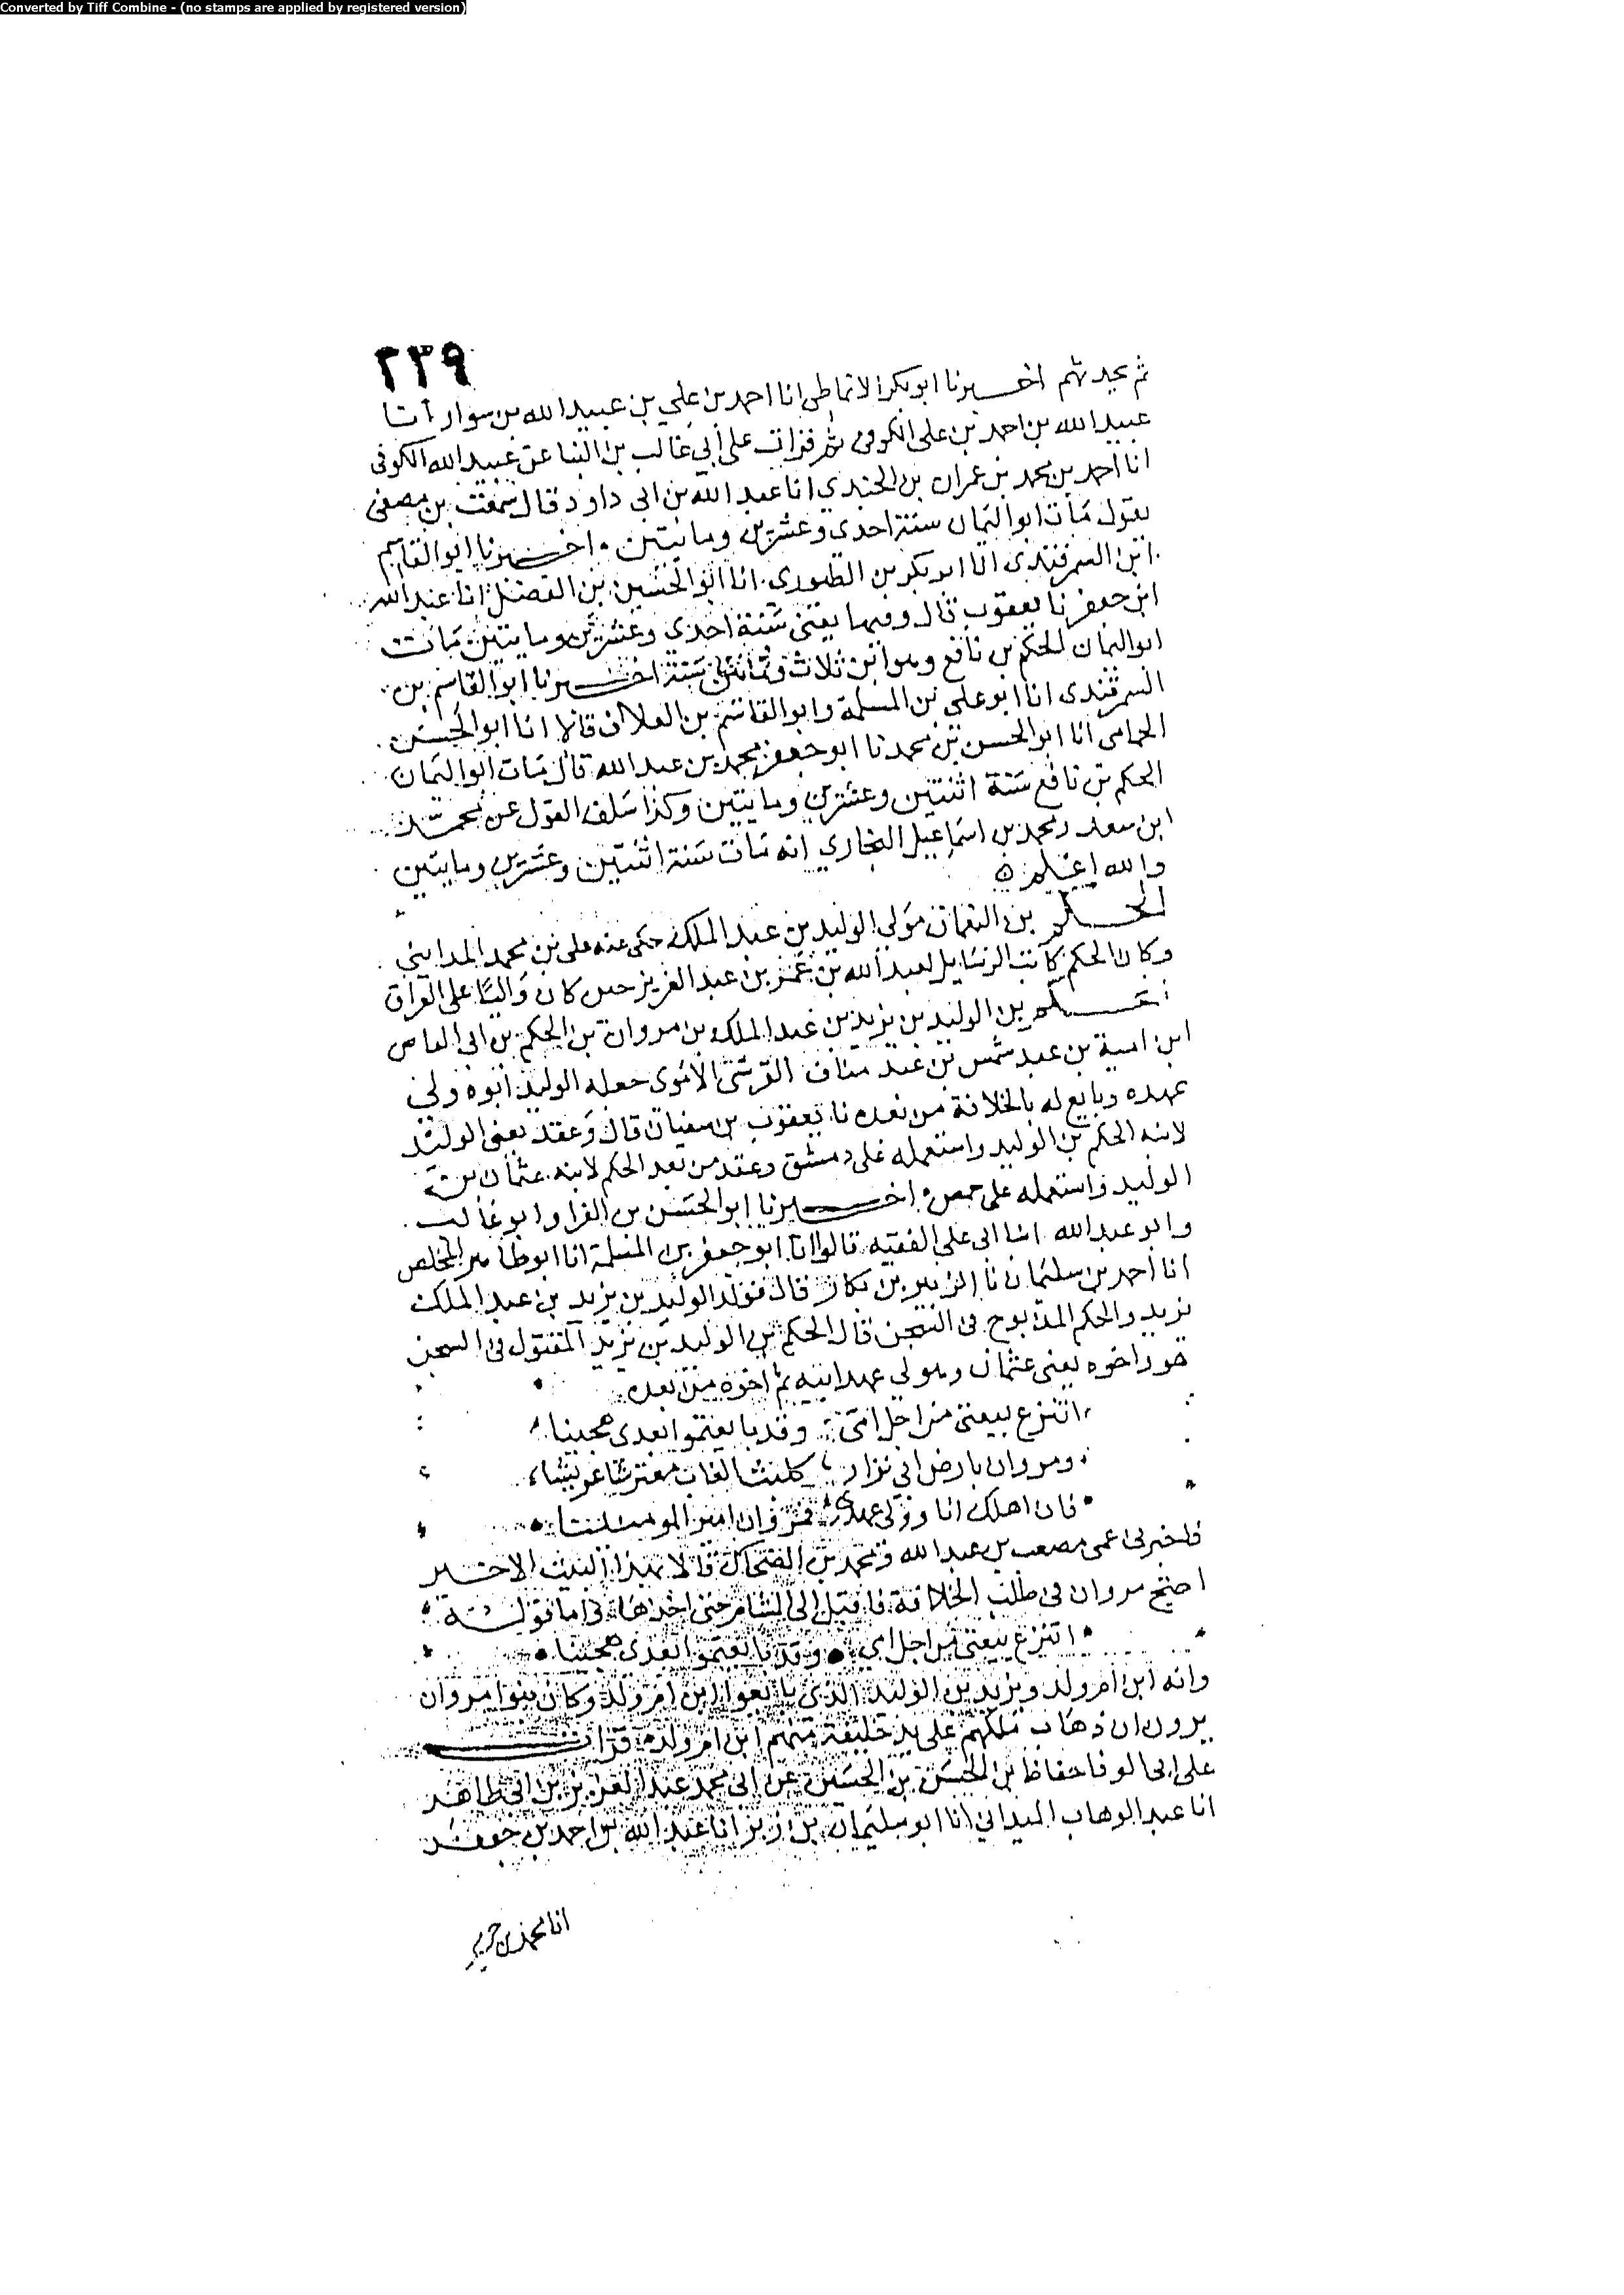 Converted by Tiff Combine - (no stamps are applied by registered version)
٢٣٩
ثم يحدثهم اخبرنا ابو بكر الانماطي انا احمد بن علي بن عبيد الله بن سوار انا
عبيد الله بن احمد بن علي الكوفي ثم قرات على ابي غالب بن البنا عن عبيد الله الكوفي
انا احمد بن محمد بن عمران بن الجندي انا عبد الله بن ابي داود قال سمعت بن مصفى
يقول مات ابو اليمان سنة احدى وعشرين ومايتين اخبرنا ابو القاسم
ابن السمرقندي انا ابو بكر بن الطبري انا ابو الحسين بن الفضل انا عبد الله
ابن جعفر نا يعقوب قال وفيها يعني سنة احدى وعشرين ومايتين مات
ابو اليمان الحكم بن نافع وهو ابن ثلاث وثمانين سنة اخبرنا ابو القاسم بن
السمرقندي انا ابو علي بن المسلمة وابو القاسم بن العلاف قالا انا ابو الحسن
الحمامي انا ابو الحسن بن محمد نا ابو جعفر محمد بن عبد الله قال مات ابو اليمان
الحكم بن نافع سنة اثنتين وعشرين ومايتين وكذا سلف القول عن محمد
ابن سعد ومحمد بن اسماعيل البخاري انه مات سنة اثنتين وعشرين ومايتين
والله اعلم ه
الحكم بن النعمان مولى الوليد بن عبد الملك حكى عنه علي بن محمد المدايني
وكان الحكم كاتب الرسايل لعبد الله بن عمر بن عبد العزيز حين كان واليا على العراق
بن الوليد بن يزيد بن عبد الملك بن مروان بن الحكم بن ابي العاص
ابن امية بن عبد شمس بن عبد مناف القرشي الاموي جعله الوليد ابوه ولي
عهده وبايع له بالخلافة من بعده نا يعقوب بن سفيان قال وعقد يعني الوليد
لابنه الحكم بن الوليد واستعمله على دمشق وعقد من بعد الحكم لابنه عثمان بن
الوليد واستعمله على حمص اخبرنا ابو الحسن بن الفرا وابو غالب
وابو عبد الله ابنا ابي علي الفقيه قالوا انا ابو جعفر بن المسلمة انا ابو طاهر المخلص
انا احمد بن سليمان نا الزبير بن بكار قال فولد الوليد بن يزيد بن عبد الملك
يزيد والحكم المذبوح في السجن قال الحكم بن الوليد بن يزيد المقتول في السجن
هو واخوه يعني عثمان وهو لي عهد ابيه ثم اخوه من بعده
اتنزع بيعتي من اجل امي وقد بايعتموا بعدي هجينا
ومروان بارض ابي نزار كليث الغاب مفترشا عرينا
فان اهلك انا وولي عهدي فمروان امير المومنينا
فاخبرني عمي مصعب بن عبد الله ومحمد بن الضحاك قالا بهذا البيت الاخير
احتج مروان في طلب الخلافة فاقبل الى الشام حتى اخذها في اما قوله
اتنزع بيعتي من اجل امي وقد بايعتموا بعدي هجينا
وانه ابن ام ولد ويزيد بن الوليد الذي بايعوا ابن ام ولد وكان بنوا مروان
يرون ان ذهاب ملكهم على يد خليفة منهم ابن ام ولد قرات
على ابي الوفا حفاظ بن الحسن بن الحسين عن ابي محمد عبد العزيز بن ابي طاهر
انا عبد الوهاب الميداني انا ابو سليمان بن زبر انا عبد الله بن احمد بن جعفر
انا محمد بن جرير